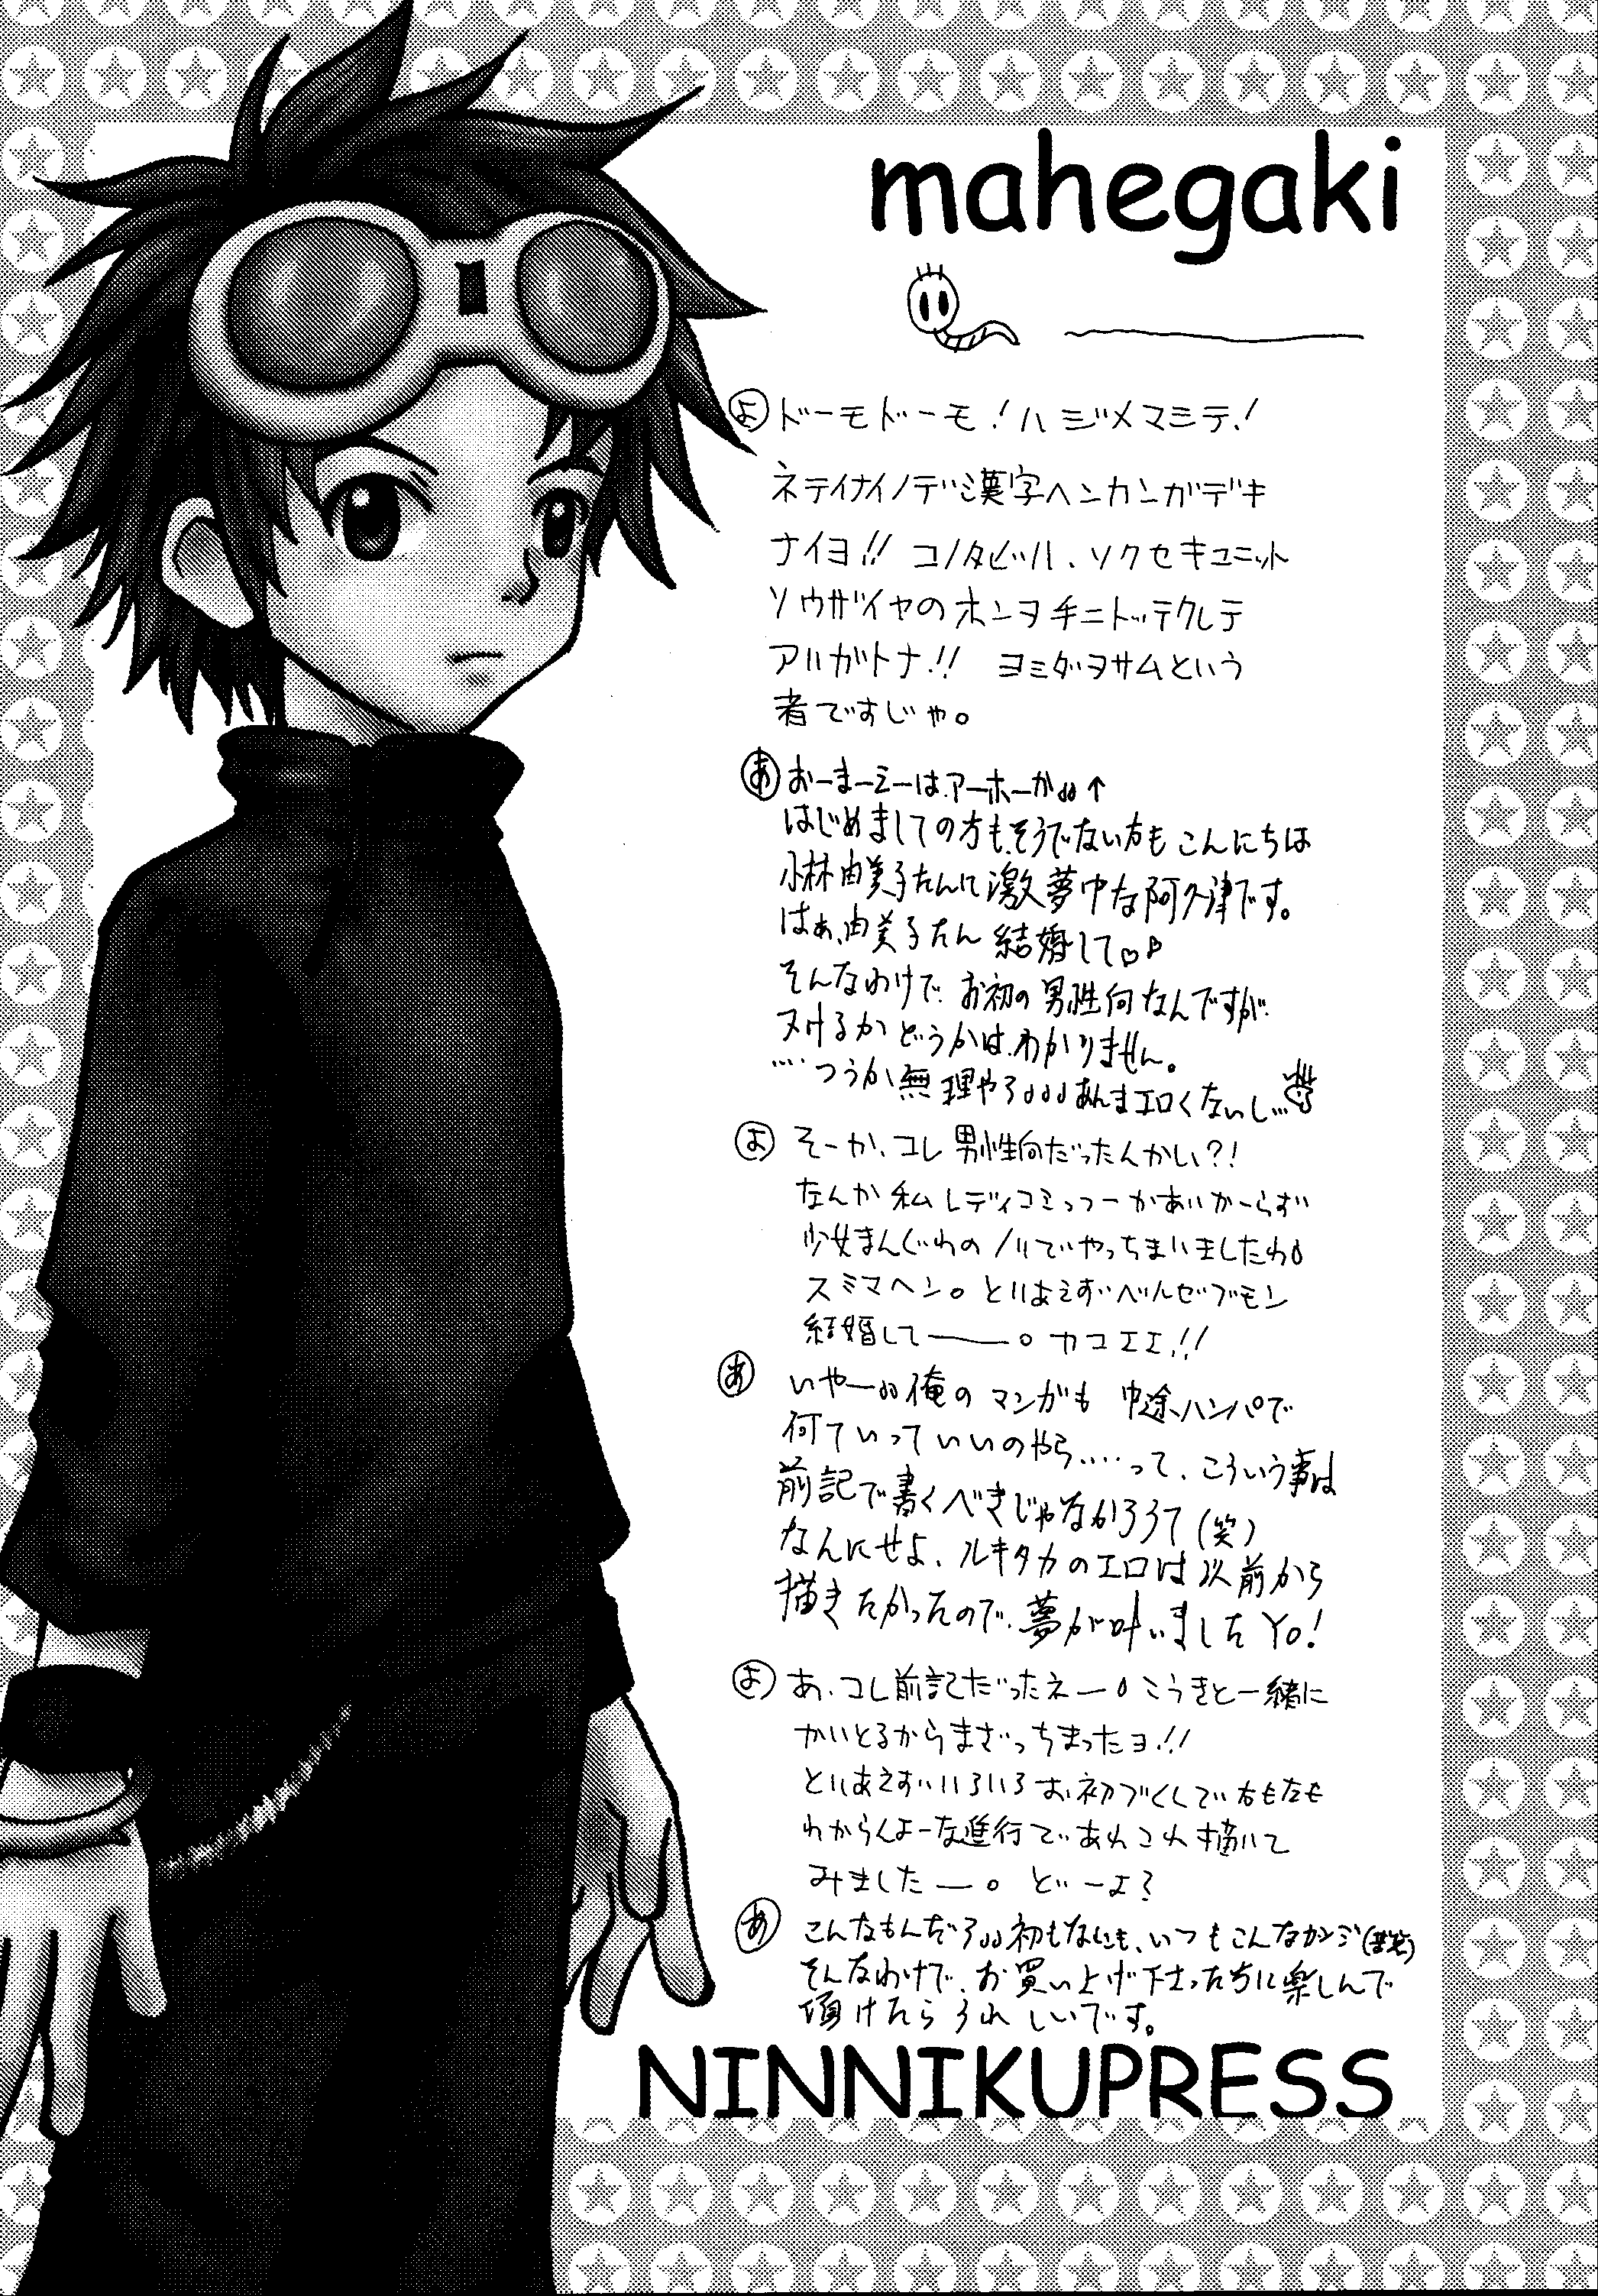 mahegaki
よ ドーモドーモ!ハジメマシテ!
ネテイナイノデ漢字ヘンカンガデキ
ナイヨ!! コノタビハ、ソクセキユニット
ソウザイヤのホンヲ手ニトッテクレテ
アリガトナ!! ヨミダヲサムという
者ですじゃ。
あ おーまーえーは、アーホーか。。↑
はじめましての方も、そうでない方も こんにちは
小林由美子たんに激夢中な阿久津です。
はぁ、由美子たん 結婚して♡♪
そんなわけで、お初の男性向なんですが、
ヌけるかどうかは、わかりません。
…つうか無理やろ。。。あんまエロくないし…
よ そーか、コレ男性向だったんかい?!
なんか私レディコミっつーかあいかーらず
少女まんぐわのノリでやっちまいましたわ
スミマヘン。とりあえずベルゼブモン
結婚して――。カコエエ!!
あ いやー。。俺のマンガも 中途ハンパで
何ていっていいのやら……って、こういう事は
前記で書くべきじゃなかろうて(笑)
なんにせよ、ルキタカのエロは以前から
描きたかったので、夢が叶いましたYo!
よ あ、コレ前記だったネー こうきと一緒に
かいとるからまざっちまったヨ!!
とりあえずいろいろお初づくしで右も左も
わからんよーな進行であれこれ描いて
みましたー。どーよ?
あ こんなもんだろ。。初もなにも、いつもこんなカンジ(苦笑)
そんなわけで、お買い上げ下さった方に楽しんで
頂けたらうれしいです。
NINNIKUPRESS